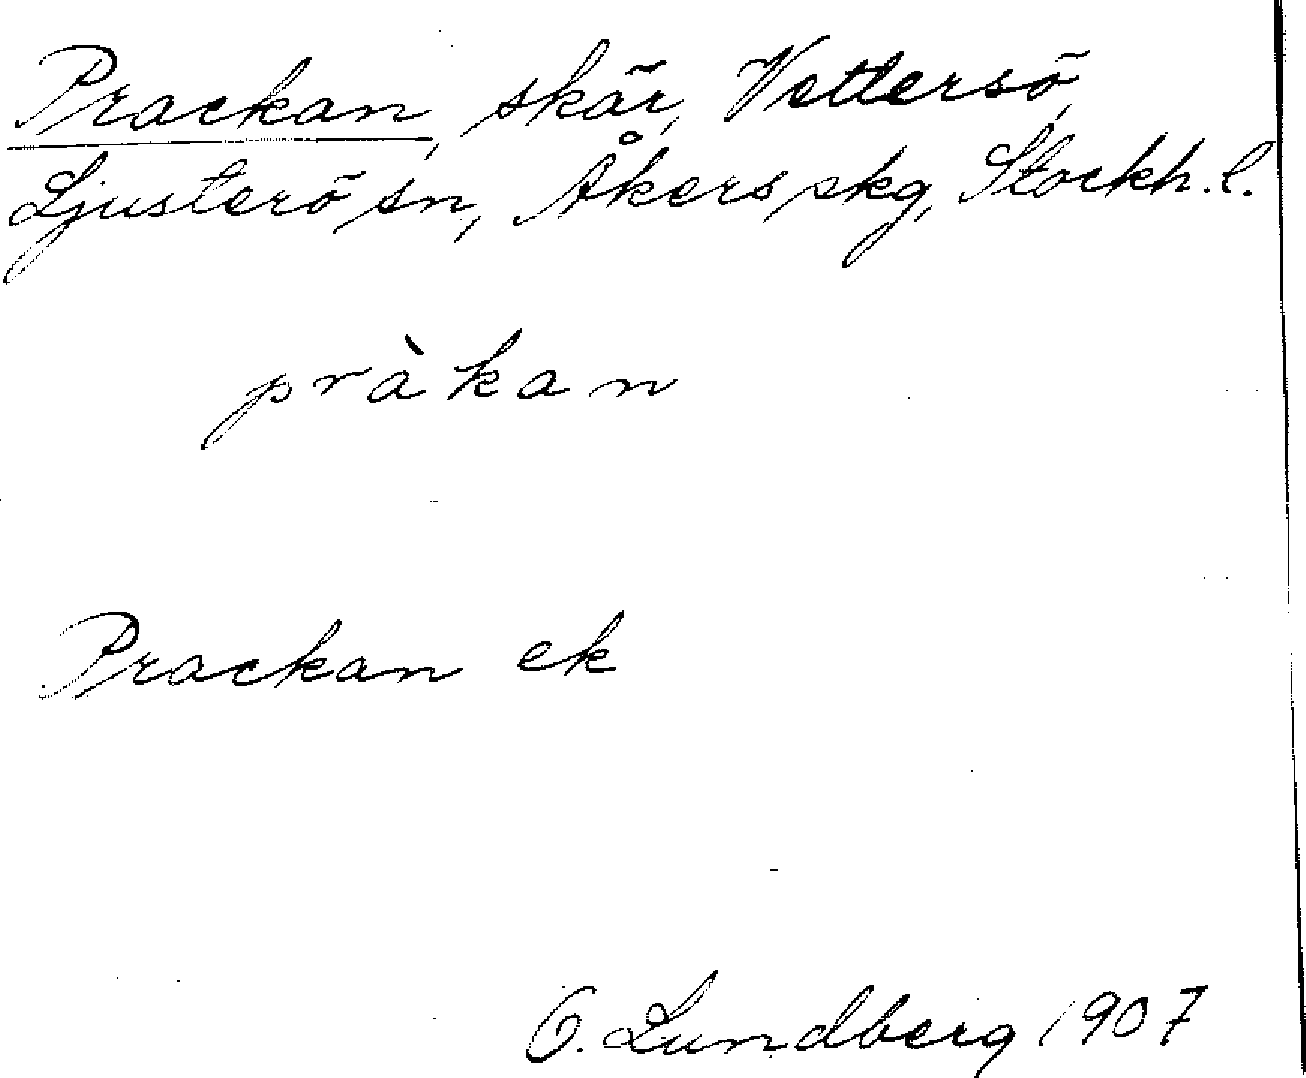 Prackan, skär, Vettersö,
Ljusterö sn, Åkers skg, Stockh. l.
pràkan
Prackan ek
O. Lundberg 1907